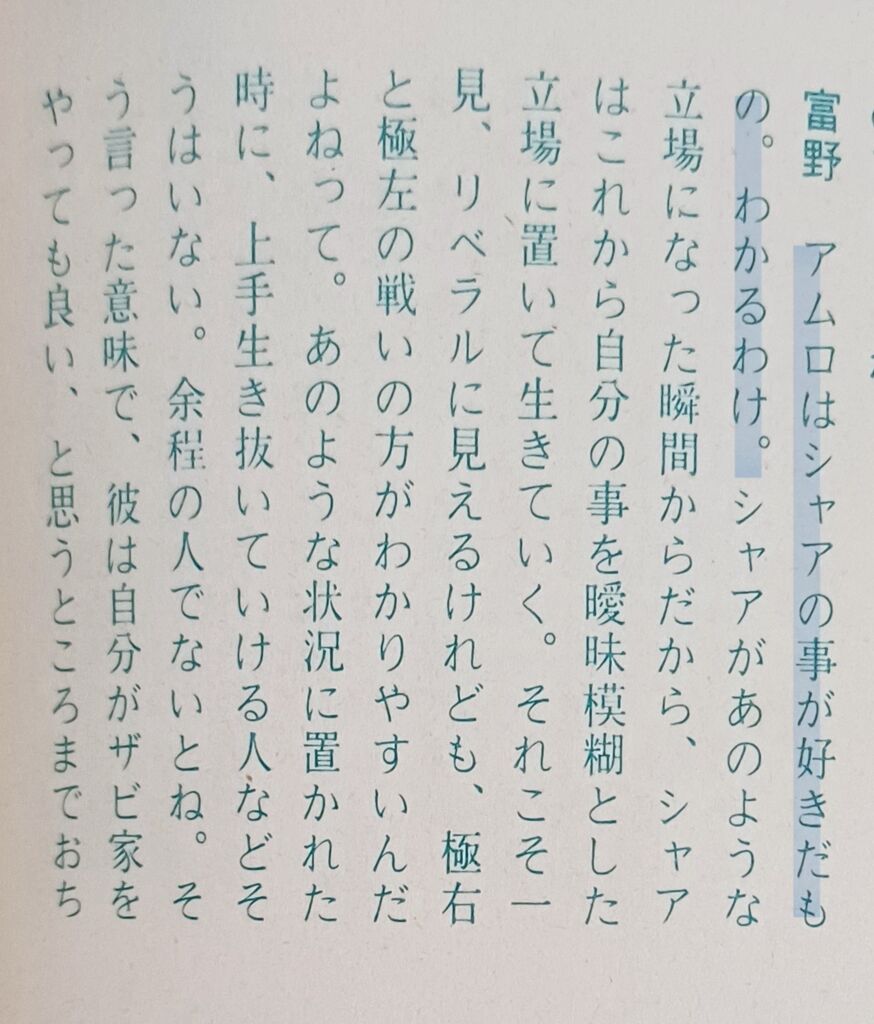 富野　アムロはシャアの事が好きだも
の。わかるわけ。シャアがあのような
立場になった瞬間からだから、シャア
はこれから自分の事を曖昧模糊とした
立場に置いて生きていく。それこそ一
見、リベラルに見えるけれども、極右
と極左の戦いの方がわかりやすいんだ
よねって。あのような状況に置かれた
時に、上手生き抜いていける人などそ
うはいない。余程の人でないとね。そ
う言った意味で、彼は自分がザビ家を
やっても良い、と思うところまでおち